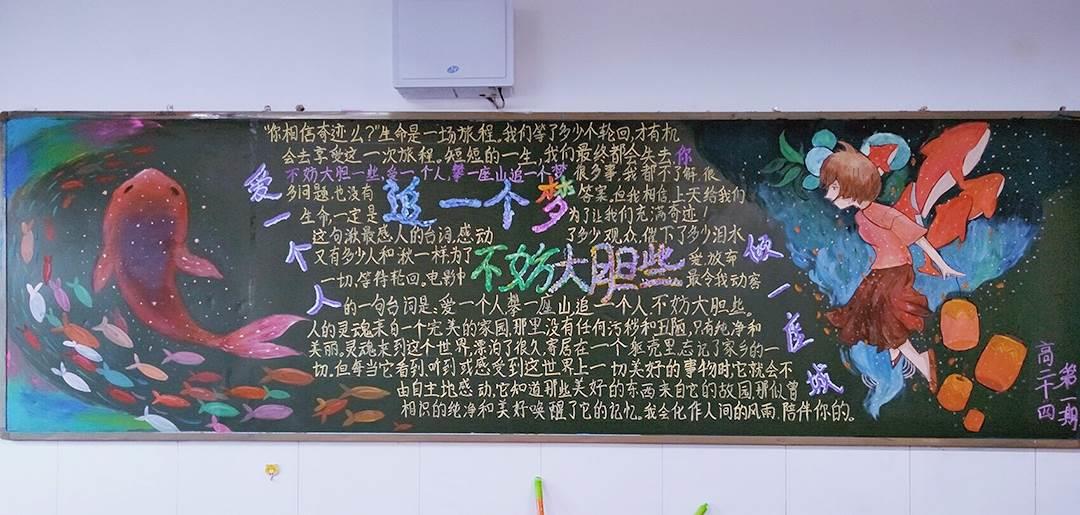 “你相信奇迹么?”生命是一场旅程。我们等了多少个轮回,才有机
会去享受这一次旅程。短短的一生,我们最终都会失去,你
不妨大胆一些,爱一个人,攀一座山,追一个梦 很多事,我都不了解,很
多问题,也没有 答案。但我相信,上天给我们
生命,一定是 为了让我们充满奇迹!
这句湫最感人的台词,感动 了多少观众,催下了多少泪水
又有多少人和湫一样为了 爱,放弃
一切,等待轮回。电影中 最令我动容
的一句台词是:爱一个人,攀一座山,追一个人,不妨大胆些。
人的灵魂来自一个完美的家园,那里没有任何污秽和丑陋,只有纯净和
美丽。灵魂来到这个世界,漂泊了很久,寄居在一个躯壳里,忘记了家乡的一
切。但每当它看到、听到或感受到这世界上一切美好的事物时,它就会不
由自主地感动,它知道那些美好的东西来自它的故园,那似曾
相识的纯净和美好唤醒了它的记忆。我会化作人间的风雨,陪伴你的。
爱一个人
追一个梦
不妨大胆些
一座城
第二期
高二十四